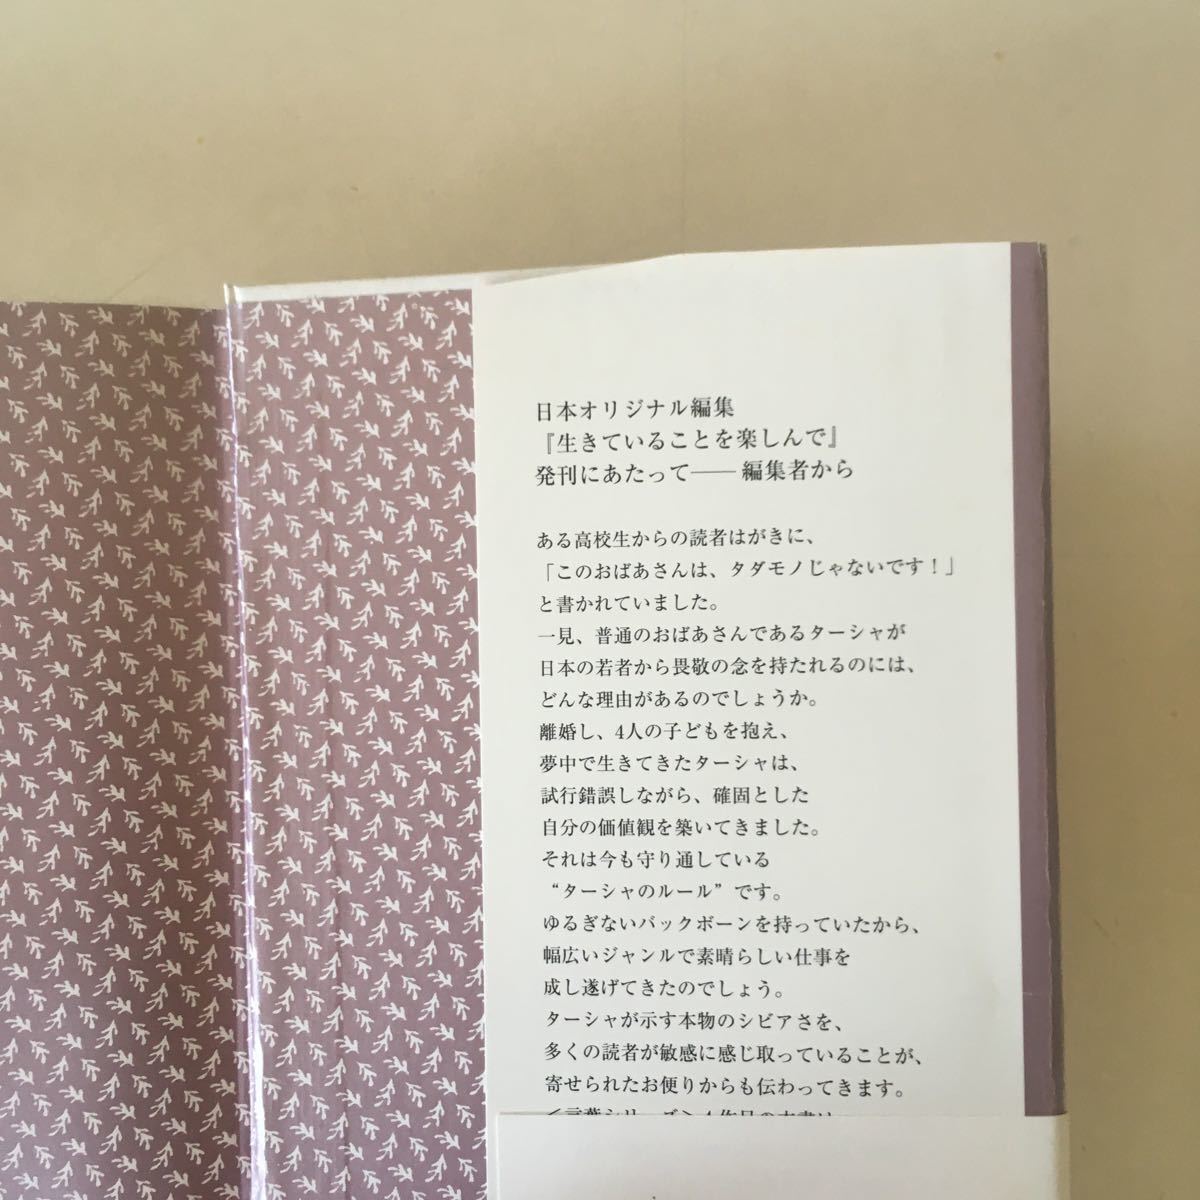 日本オリジナル編集
『生きていることを楽しんで』
発刊にあたって――編集者から
ある高校生からの読者はがきに、
「このおばあさんは、タダモノじゃないです！」
と書かれていました。
一見、普通のおばあさんであるターシャが
日本の若者から畏敬の念を持たれるのには、
どんな理由があるのでしょうか。
離婚し、4人の子どもを抱え、
夢中で生きてきたターシャは、
試行錯誤しながら、確固とした
自分の価値観を築いてきました。
それは今も守り通している
“ターシャのルール”です。
ゆるぎないバックボーンを持っていたから、
幅広いジャンルで素晴らしい仕事を
成し遂げてきたのでしょう。
ターシャが示す本物のシビアさを、
多くの読者が敏感に感じ取っていることが、
寄せられたお便りからも伝わってきます。
＜言葉シリーズ＞4作目の本書は